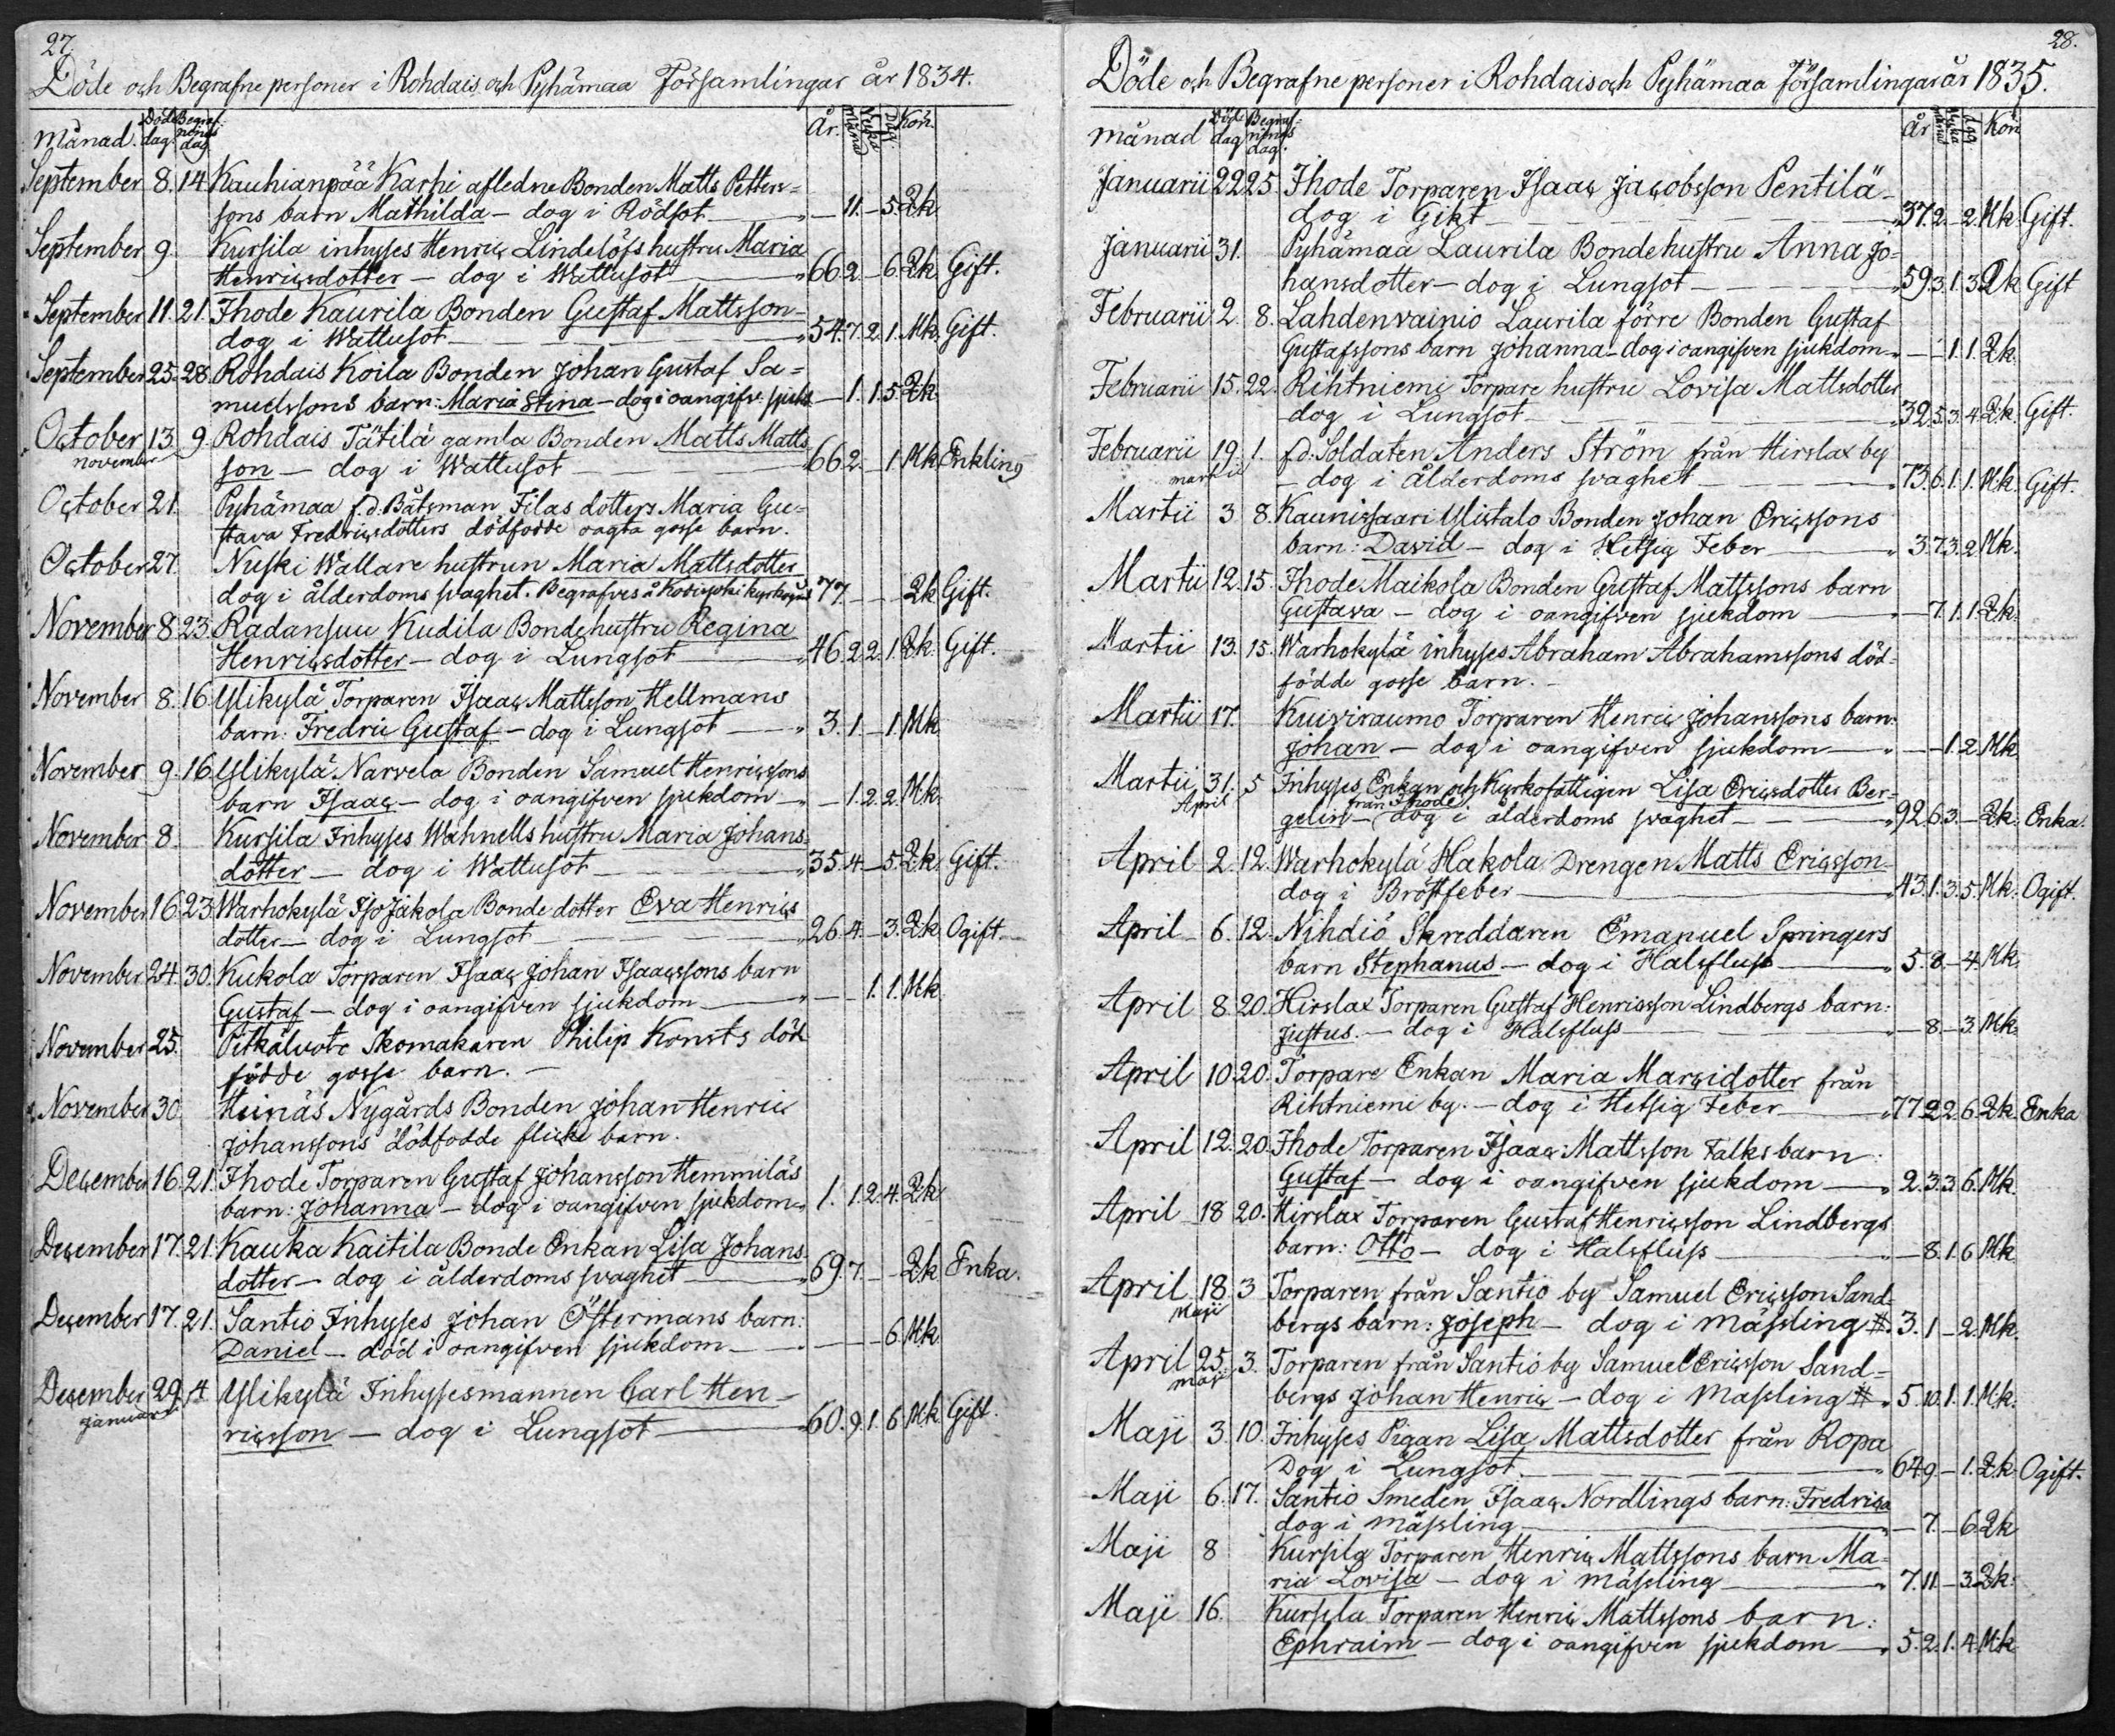 27.
Döde och Begrafne personer i Rohdais och Pyhämaa Församlingar år 1834.
månad. Döde dag. Begrafnings dag År. månad Vecka Dag. Kön.
September 8. 14. Kauhianpää Karhi afledne Bonden Matts Petters=
sons barn Mathilda – dog i Rödsot – 11. – 5. Qk
September 9. Kursila inhyses Henric Lindelöfs hustru Maria
Henricsdotter – dog i Wattusot 66. 2. – 6. Qk Gift.
September 11. 21. Ihode Kaurila Bonden Gustaf Mattsson –
dog i Wattusot 54. 7. 2. 1. Mk. Gift.
September 25. 28. Rohdais Koila Bonden Johan Gustaf Sa=
muelssons barn: Maria Stina – dog i oangifv. sjukd. – 1. 1. 5. Qk
October 13. 9. Rohdais Tätilä gamla Bonden Matts Matts
november
son – dog i Wattusot 66. 2. – 1. Mk Enkling
October 21. Pyhämaa f.d. Båtsman Filas dotters Maria Gu=
stava Fredricsdotters dödfödde oägta gosse barn.
October 27. Nuski Wallare hustrun Maria Mattsdotter
dog i ålderdoms svaghet. Begrafves å Kodisjoki kyrkogård 77. – – Qk Gift.
November 8. 23. Radansuu Kudila Bonde hustru Regina
Henricsdotter – dog i Lungsot 46. 2. 2. 1. Qk. Gift.
November 8. 16. Ylikylä Torparen Isaac Mattsson Hellmans
barn: Fredric Gustaf – dog i Lungsot 3. 1. – 1. Mk
November 9. 16. Ylikylä Narvela Bonden Samuel Henricssons
barn Isaac – dog i oangifven sjukdom – 1. 2. 2. Mk.
November 8. Kursila Inhyses Wahnells hustru Maria Johans=
dotter – dog i Wattusot 35. 4. – 5. Qk. Gift.
November 16. 23. Warhokylä Iso Jakola Bonde dotter Eva Henrics
dotter – dog i Lungsot 26. 4. – 3. Qk Ogift.
November 24. 30. Kukola Torparen Isaac Johan Isaacssons barn
Gustaf – dog i oangifven sjukdom – – 1. 1. Mk
November 25. Pitkäluoto Skomakaren Philip Konsts död
födde gosse barn. –
November 30. Heinäs Nygårds Bonden Johan Henric
Johanssons dödfödde flicke barn.
December 16. 21. Ihode Torparen Gustaf Johansson Hemmiläs
barn: Johanna – dog i oangifven sjukdom 1. 1. 2. 4. Qk
December 17. 21. Kauka Kaitila Bonde Enkan Lisa Johans
dotter – dog i ålderdoms svaghet 69. 7. – – Qk Enka.
December 17. 21. Santio Inhyses Johan Östermans barn:
Daniel – död i oangifven sjukdom – – – 6. Mk
December 29. 4. Ylikylä Inhysesmannen Carl Hen–
januari
ricsson – dog i Lungsot 60. 9. 1. 6. Mk Gift.
28.
Döde och Begrafne personer i Rohdais och Pyhämaa Församlingar år 1835.
månad Döde dag Begrafnings dag. År månad Vecka dag Kön
Januarii 22 25. Ihode Torparen Isaac Jacobsson Pentilä –
dog i Gikt 37. 2. – 2. Mk Gift.
Januarii 31. Pyhämaa Laurila Bonde hustru Anna Jo=
hansdotter – dog i Lungsot 59. 3. 1. 3. Qk Gift
Februarii 2. 8. Lahdenvainio Laurila förre Bonden Gustaf
Gustafssons barn Johanna – dog i oangifven sjukdom – – 1. 1. Qk.
Februarii 15. 22. Rihtniemi Torpare hustru Lovisa Mattsdotter
dog i Lungsot 32. 5. 3. 4. Qk. Gift.
Februarii 19. 1. f.d. Soldaten Anders Ström från Hirslax by
martii
– dog i ålderdoms svaghet 73. 6. 1. 1. Mk. Gift.
Martii 3 8. Kaunissaari Ylistalo Bonden Johan Ericssons
barn: David – dog i Hetsig Feber 3. 7. 3. 2 Mk.
Martii 12. 15. Ihode Maikola Bonden Gustaf Mattssons barn
Gustava – dog i oangifven sjukdom – 7. 1. 1. Qk.
Martii 13. 15. Warhokylä inhyses Abraham Abrahamssons död=
födde gosse barn. –
Martii 17. Kuiviraumo Torparen Henric Johanssons barn:
Johan – dog i oangifven sjukdom – – 1. 2. Mk
Martii 31. 5 Inhyses Enkan och Kyrkofattigen Lisa Ericsdotter Ber=
April från Ihode
gelin – dog i ålderdoms svaghet 92. 6. 3. – Qk. Enka.
April 2. 12. Warhokylä Hakola Drengen Matts Ericsson
dog i Bröstfeber 43. 1. 3. 5. Mk. Ogift.
April 6. 12. Nihdiö Skreddaren Emanuel Springers
barn Stephanus – dog i Halsfluss 5. 8. – 4. Mk.
April 8. 20. Hirslax Torparen Gustaf Henricsson Lindbergs barn:
Justus. – dog i Halsfluss – 8. – 3. Mk.
April 10. 20. Torpare Enkan Maria Marcidotter från
Rihtniemi by. – dog i Hetsig Feber 77. 2. 2. 6. Qk Enka
April 12. 20. Ihode Torparen Isaac Mattsson Falks barn:
Gustaf – dog i oangifven sjukdom 2. 3. 3. 6. Mk.
April 18 20. Hirslax Torparen Gustaf Henricsson Lindbergs
barn: Otto – dog i Halsfluss – 8. 1. 6 Mk
April 18. 3 Torparen från Santio by Samuel Ericsson Sand=
Maji
bergs barn: Joseph – dog i mässling #. 3. 1 – 2. Mk.
April 25. 3. Torparen från Santio by Samuel Ericsson Sand=
maji
bergs Johan Henric – dog i Massling #. 5. 10. 1. 1. Mk.
Maji 3. 10. Inhyses Pigan Lisa Mattsdotter från Ropa
Dog i Lungsot. 64. 9. – 1. Qk. Ogift.
Maji 6. 17. Santio Smeden Isaac Nordlings barn: Fredrica
dog i mässling – 7. – 6. Qk
Maji 8 Kursila Torparen Henric Mattssons barn Ma=
ria Lovisa – dog i mässling 7. 11 – 3. Qk.
Maji 16. Kursila Torparen Henric Mattssons barn:
Ephraim – dog i oangifven sjukdom 5. 2. 1. 4. Mk